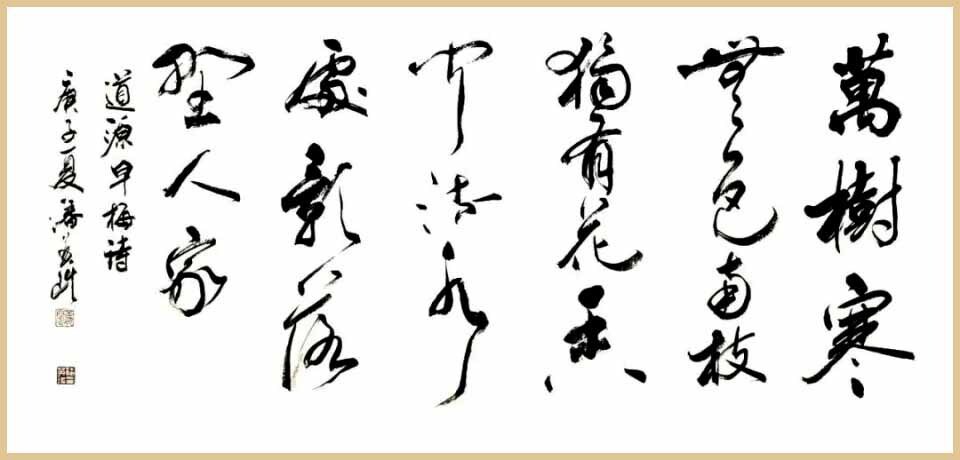 萬樹寒
無色南枝
獨有花香
聞流水
處影落
野人家
道源早梅诗
庚子夏潘